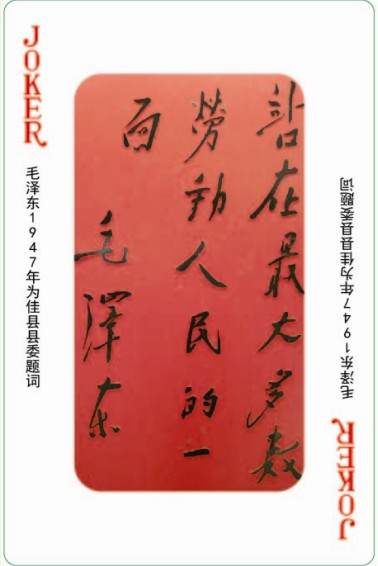 JOKER
毛泽东1947年为佳县县委题词
站在最大多数
劳动人民的一
面
毛泽东
毛泽东1947年为佳县县委题词
JOKER